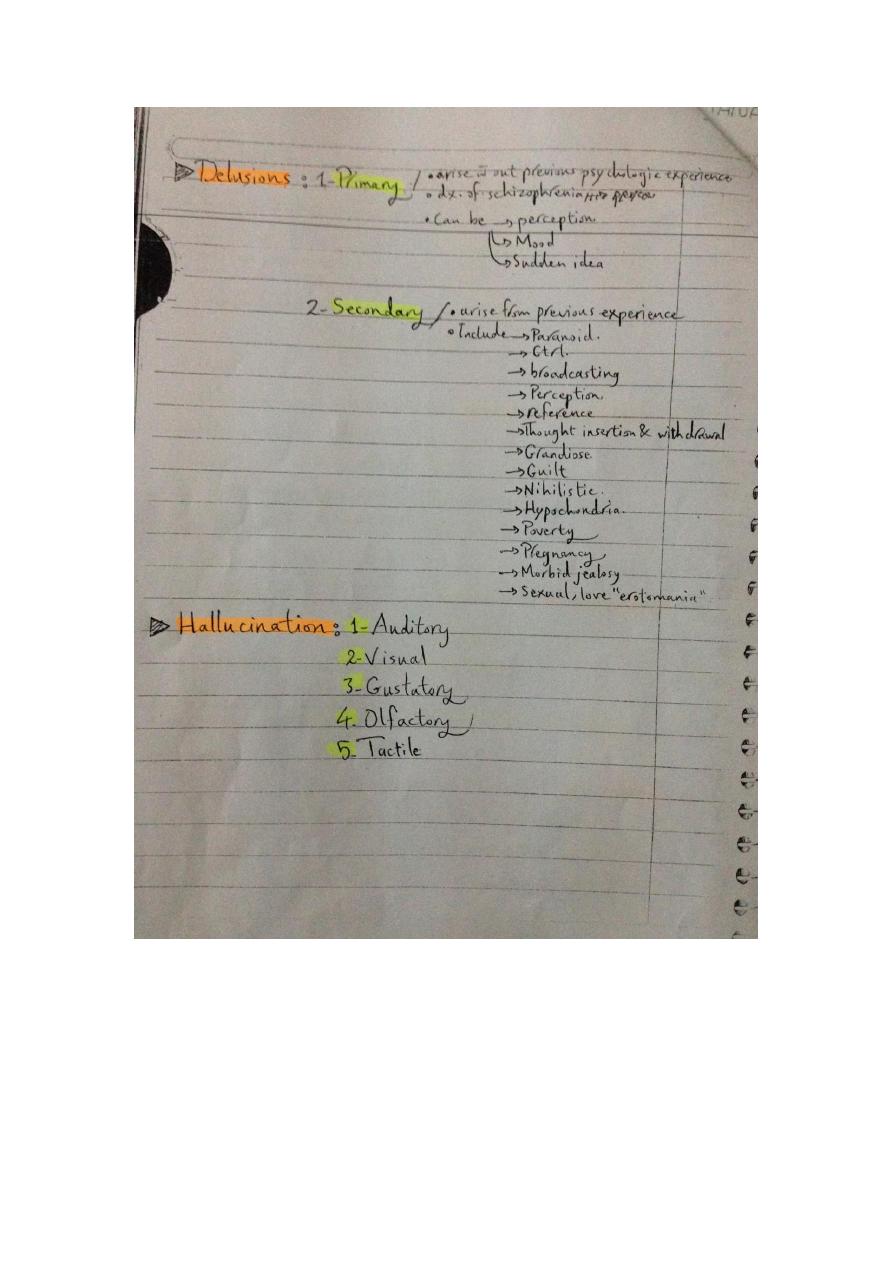 Delusions : 1- Primary / • arise w̄ out previous psychologic experience
• dx. of schizophrenia
• Can be → perception.
→ Mood
→ Sudden idea
2- Secondary / • arise from previous experience
• Include → Paranoid.
→ Ctrl.
→ broadcasting
→ Perception.
→ reference
→ Thought insertion & withdrawal
→ Grandiose.
→ Guilt
→ Nihilistic.
→ Hypochondria.
→ Poverty
→ Pregnancy
→ Morbid jealosy
→ Sexual, love "erotomania"
Hallucination : 1- Auditory
2- Visual
3- Gustatory
4- Olfactory
5- Tactile